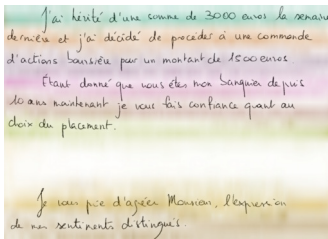 J'ai hérité d'une somme de 3000 euros la semaine
dernière et j'ai décidé de procéder à une commande
d'actions bansière par un montant de 1500 euros.
Étant donné que vous êtes mon banquier depuis
10 ans maintenant je vous fais confiance quant au
choix du placement.
Je vous prie d'agréer Monsieur, l'expression
de mes sentiments distingués.